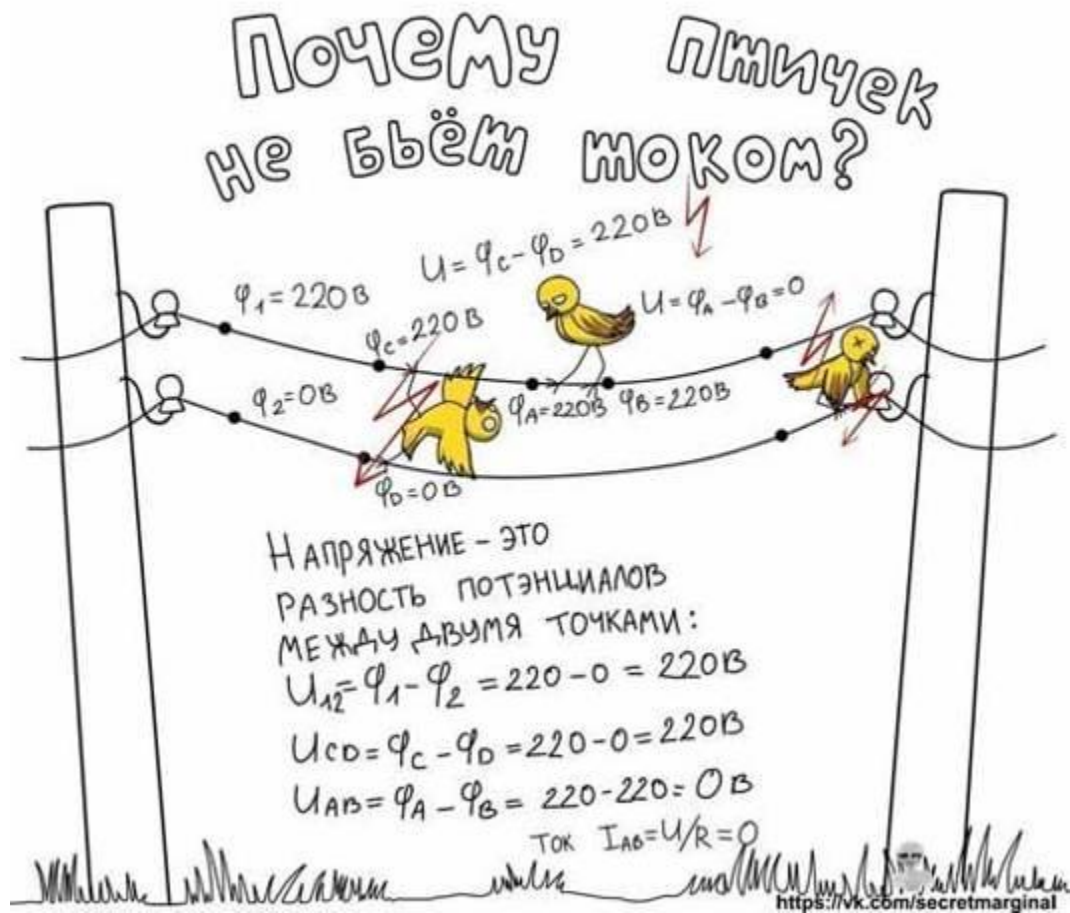 Почему птичек
не бьёт током?
U = φC - φD = 220В
φ1 = 220В
U = φA - φB = 0
φC = 220В
φ2 = 0В
φA = 220В φB = 220В
φD = 0В
НАПРЯЖЕНИЕ - ЭТО
РАЗНОСТЬ ПОТЭНЦИАЛОВ
МЕЖДУ ДВУМЯ ТОЧКАМИ:
U12 = φ1 - φ2 = 220 - 0 = 220В
UCD = φC - φD = 220 - 0 = 220В
UAB = φA - φB = 220 - 220 = 0В
ТОК IAB = U/R = 0
https://vk.com/secretmarginal